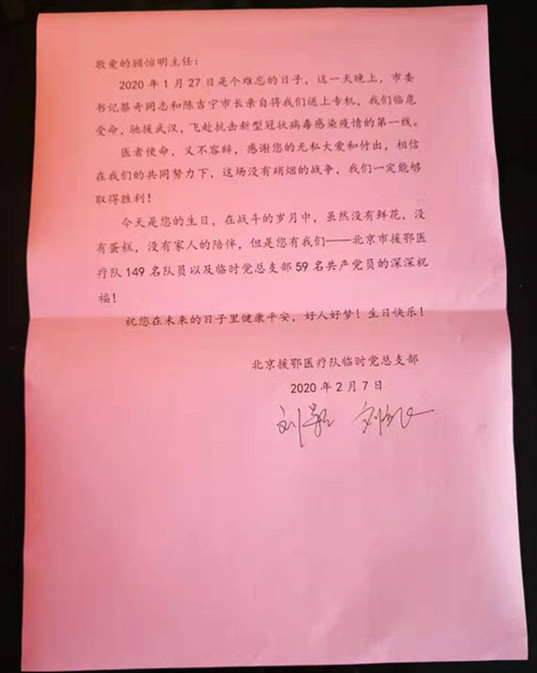 敬爱的顾怡明主任：
2020 年 1 月 27 日是个难忘的日子，这一天晚上，市委
书记蔡奇同志和陈吉宁市长亲自将我们送上专机，我们临危
受命，驰援武汉，飞赴抗击新型冠状病毒感染疫情的第一线。
医者使命，义不容辞，感谢您的无私大爱和付出，相信
在我们的共同努力下，这场没有硝烟的战争，我们一定能够
取得胜利！
今天是您的生日，在战斗的岁月中，虽然没有鲜花，没
有蛋糕，没有家人的陪伴，但是您有我们——北京市援鄂医
疗队 149 名队员以及临时党总支部 59 名共产党员的深深祝
福！
祝您在未来的日子里健康平安，好人好梦！生日快乐！
北京援鄂医疗队临时党总支部
2020 年 2 月 7 日
刘 刘